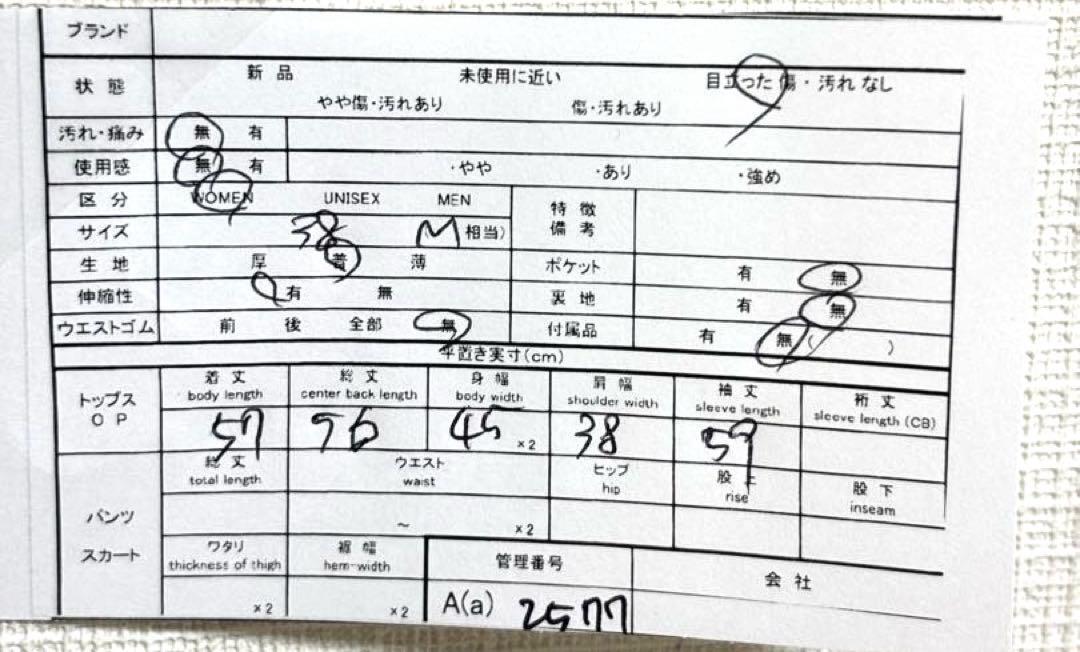 ブランド
状態 新品 未使用に近い 目立った傷・汚れなし
やや傷・汚れあり 傷・汚れあり
汚れ・痛み 無 有
使用感 無 有 ・やや ・あり ・強め
区分 WOMEN UNISEX MEN 特徴備考
サイズ 38 M 相当)
生地 厚 普 薄 ポケット 有 無
伸縮性 有 無 裏地 有 無
ウエストゴム 前 後 全部 無 付属品 有 無( )
平置き実寸(cm)
トップス OP 着丈 総丈 身幅 肩幅 袖丈 裄丈
body length center back length body width shoulder width sleeve length sleeve length (CB)
57 96 45 ×2 38 59
総丈 ウエスト ヒップ 股上 股下
total length waist hip rise inseam
パンツ ~ ×2
スカート ワタリ 裾幅 管理番号 会社
thickness of thigh hem-width
×2 ×2 A(a) 2577